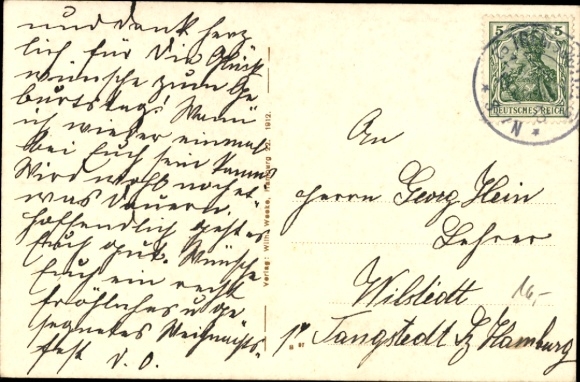 und dank herz
lich für die Glück
wünsche zum Ge
burtstag! Wann
ich wieder einmal
bei Euch sein kann
Wird wohl noch et
was dauern,
hoffendlich geht es
Euch gut. Wünsche
Euch ein recht
fröhliches u ge
segnetes Weihnachts-
fest D. O.
Verlag: Wilh. Weeke, Hamburg 22. 1912.
5 5
DEUTSCHES REICH
An
Herrn Georg Hein
Lehrer
Wilstedt
16,-
Tangstedt Bz Hamburg